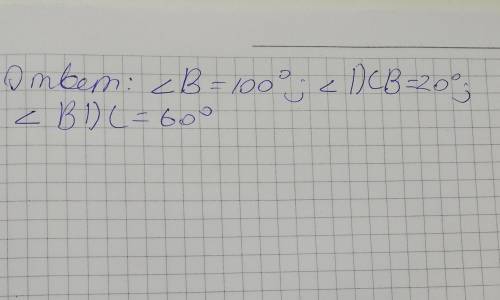 Ответ: ∠B=100°; ∠DCB=20°;
∠BDC=60°